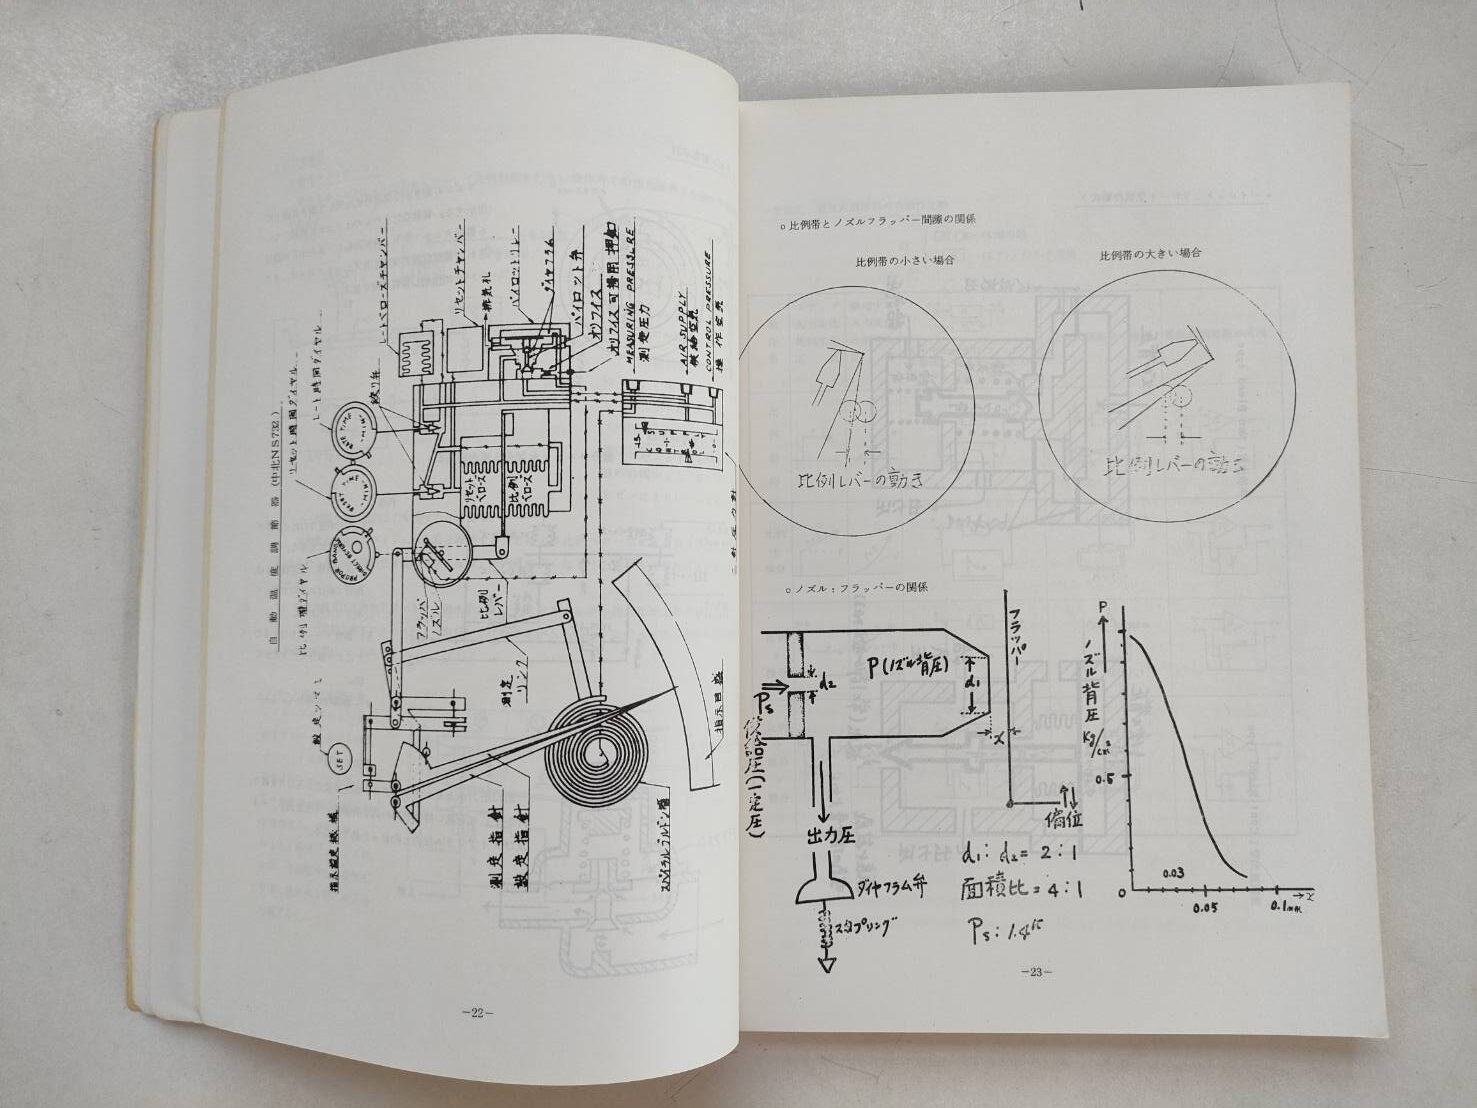 自動温度調節器 (中北NS732)
リセット時間ダイヤル
レート時間ダイヤル
比例帯ダイヤル
RATE TIME
(MIN)
RESET TIME
(MIN)
PROPOR BAND
DIRECT REVERSE
絞り弁
レートベローズチャンバー
リセットチャンバー
排気孔
パイロットリレー
ダイヤフラム
パイロット弁
オリフイス
オリフイス可掃用押釦
MEASURING PRESSURE
測定圧力
AIR SUPPLY
供給空気
CONTROL PRESSURE
操作空気
リセットベローズ
比例ベローズ
フラッパ
ノズル
比例レバー
測定リンク
設定ツマミ
SET
指示設定機構
測定指針
設定指針
スパイラルブルドン管
指示目盛
-22-
o比例帯とノズルフラッパー間隙の関係
比例帯の小さい場合
比例帯の大きい場合
比例レバーの動き
比例レバーの動き
oノズル:フラッパーの関係
Ps
供給圧(一定圧)
d2
P(ノズル背圧)
d1
x
フラッパー
偏位
出力圧
ダイヤフラム弁
スタプリング
d1:d2=2:1
面積比=4:1
Ps:1.4K
P
ノズル背圧
Kg/cm²
0.5
0
0.03
0.05
0.1mm
→x
-23-